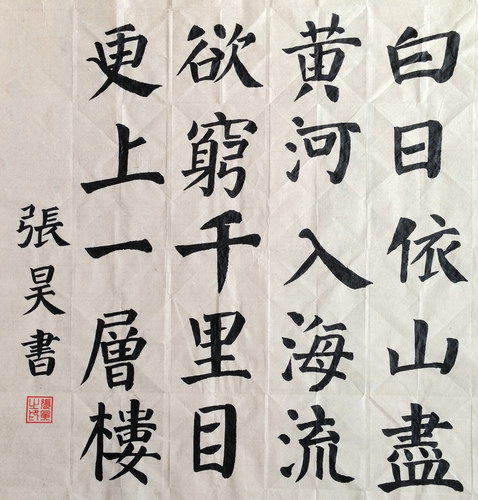 白日依山盡
黄河入海流
欲窮千里目
更上一層樓
張昊書